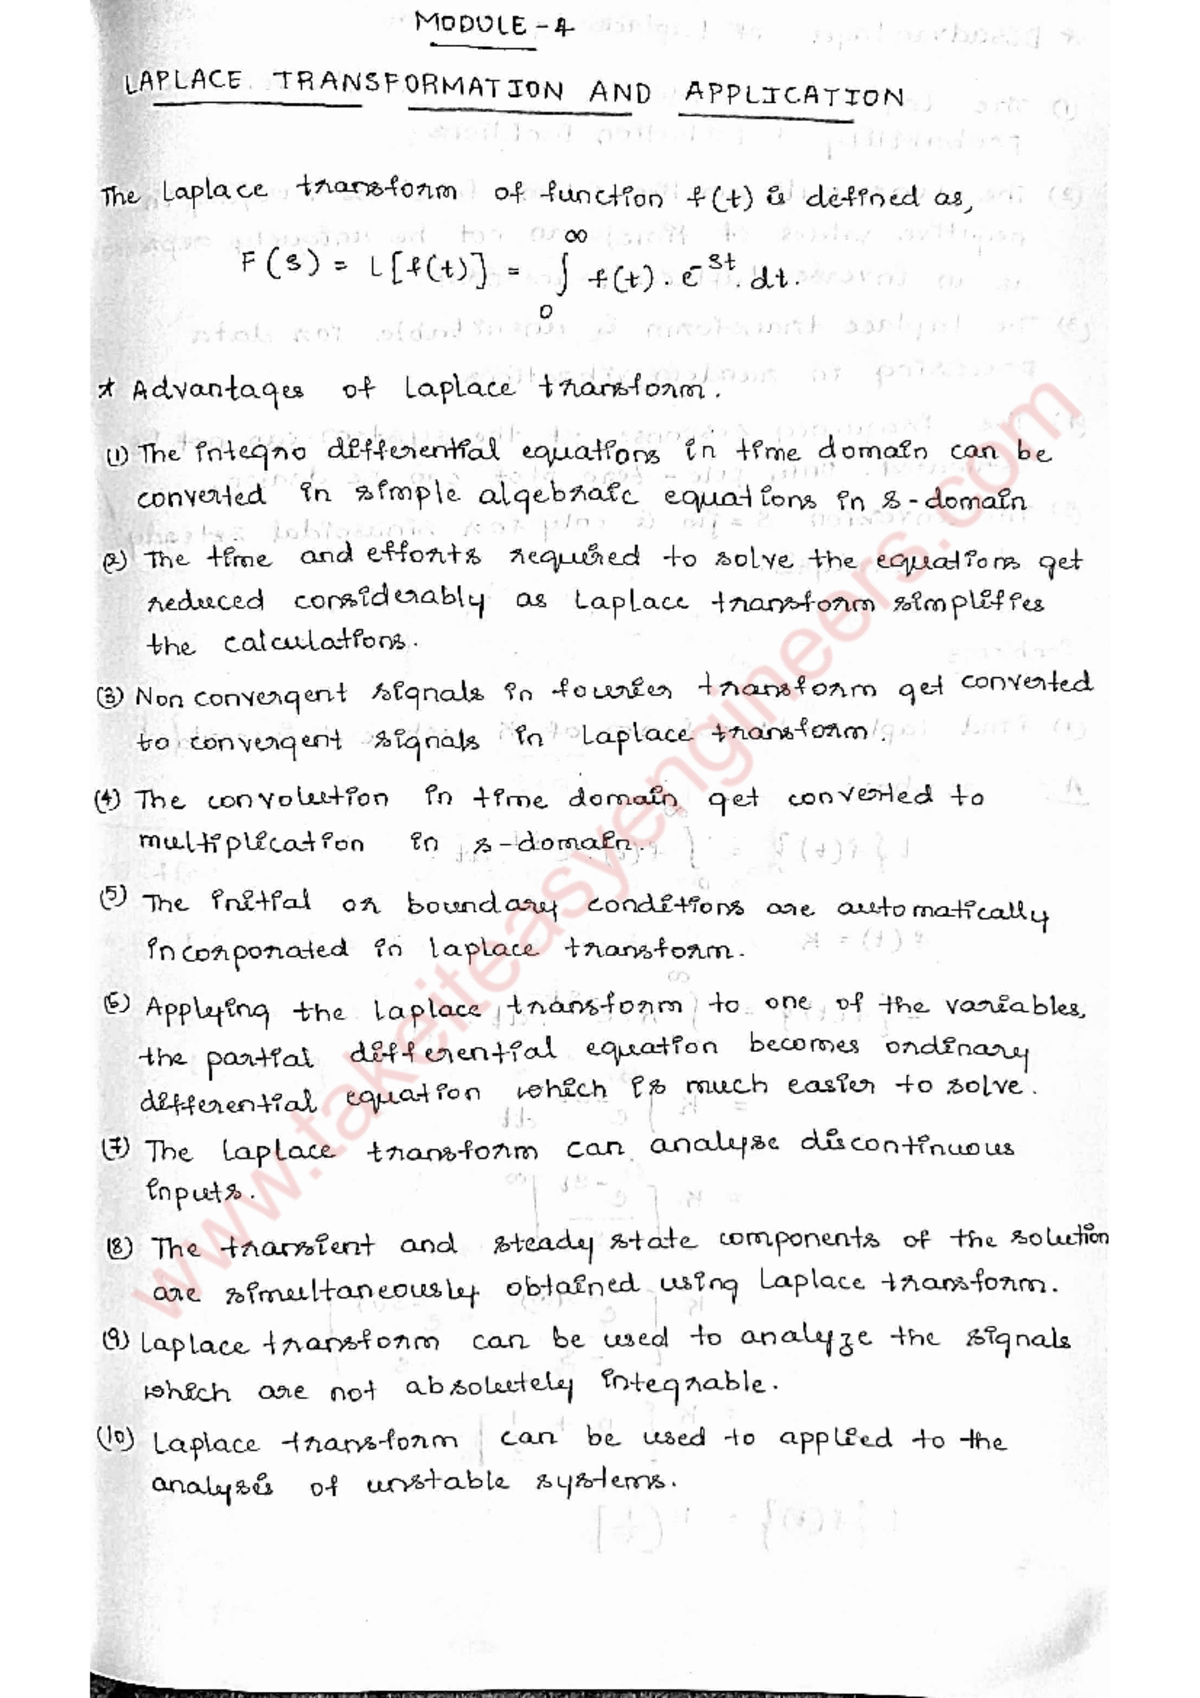 MODULE - 4
LAPLACE TRANSFORMATION AND APPLICATION
The Laplace transform of function f(t) is defined as,
F(s) = L[f(t)] = ∫₀^∞ f(t) . e^-st . dt.
* Advantages of Laplace transform.
(1) The integro differential equations in time domain can be
converted in simple algebraic equations in s-domain
(2) The time and efforts required to solve the equations get
reduced considerably as Laplace transform simplifies
the calculations.
(3) Non convergent signals in fourier transform get converted
to convergent signals in Laplace transform.
(4) The convolution in time domain get converted to
multiplication in s-domain.
(5) The initial or boundary conditions are automatically
incorporated in laplace transform.
(6) Applying the laplace transform to one of the variables,
the partial differential equation becomes ordinary
differential equation which is much easier to solve.
(7) The laplace transform can analyse discontinuous
inputs.
(8) The transient and steady state components of the solution
are simultaneously obtained using Laplace transform.
(9) Laplace transform can be used to analyze the signals
which are not absolutely integrable.
(10) Laplace transform can be used to applied to the
analysis of unstable systems.
www.takeiteasyengineers.com